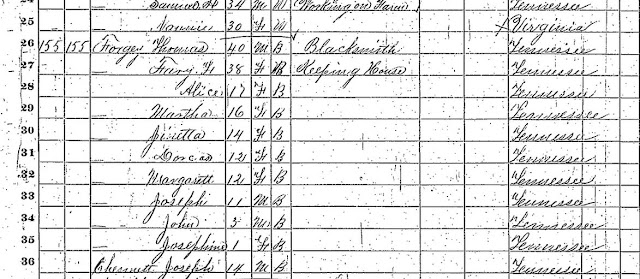 24 Samuel H 34 M W Working on Farm Tennessee
25 — Nannie 30 F W Virginia
26 155 155 Forgey Thomas 40 M B Blacksmith Tennessee
27 — 38 F B Keeping House Tennessee
28 — Alice 17 F B Tennessee
29 — Martha 16 F B Tennessee
30 — 14 F B Tennessee
31 — Dorcas 12 F B Tennessee
32 — Margarett 12 F B Tennessee
33 — Joseph 11 M B Tennessee
34 — John 5 M B Tennessee
35 — Josephine 1 F B Tennessee
36 Joseph 14 M B Tennessee